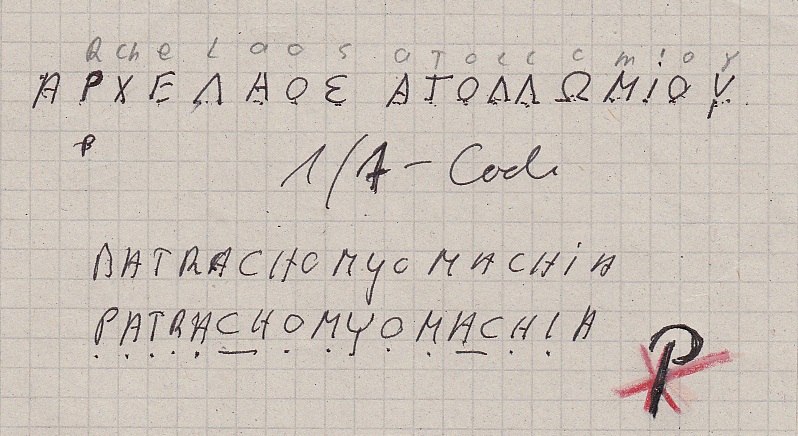 R ch e l a o s a T o l l o m i o y
ΑΡΧΕΛΑΟΣ ΑΤΟΛΛΩΜΙΟΥ
P
1/A - Code
BATRACHOMYOMACHIA
PATRACHOMYOMACHIA
P